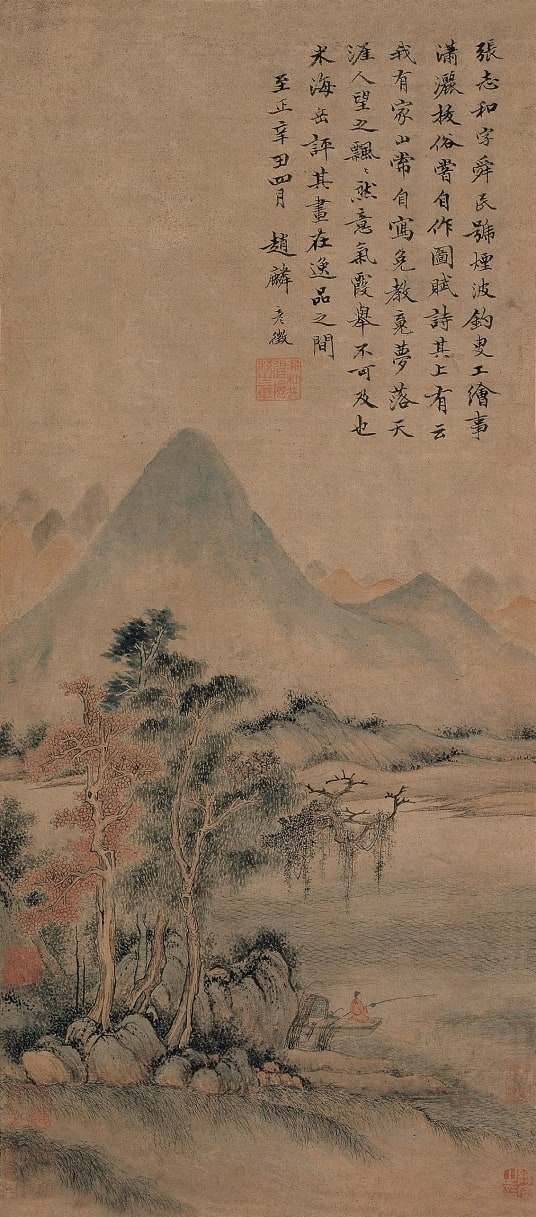 張志和字舜民號煙波釣叟工繪事
瀟灑拔俗嘗自作圖賦詩其上有云
我有家山常自寫免教魂夢落天
涯人望之飄〻然意氣霞舉不可及也
米海岳評其畫在逸品之間
至正辛丑四月
趙麟
彥徵